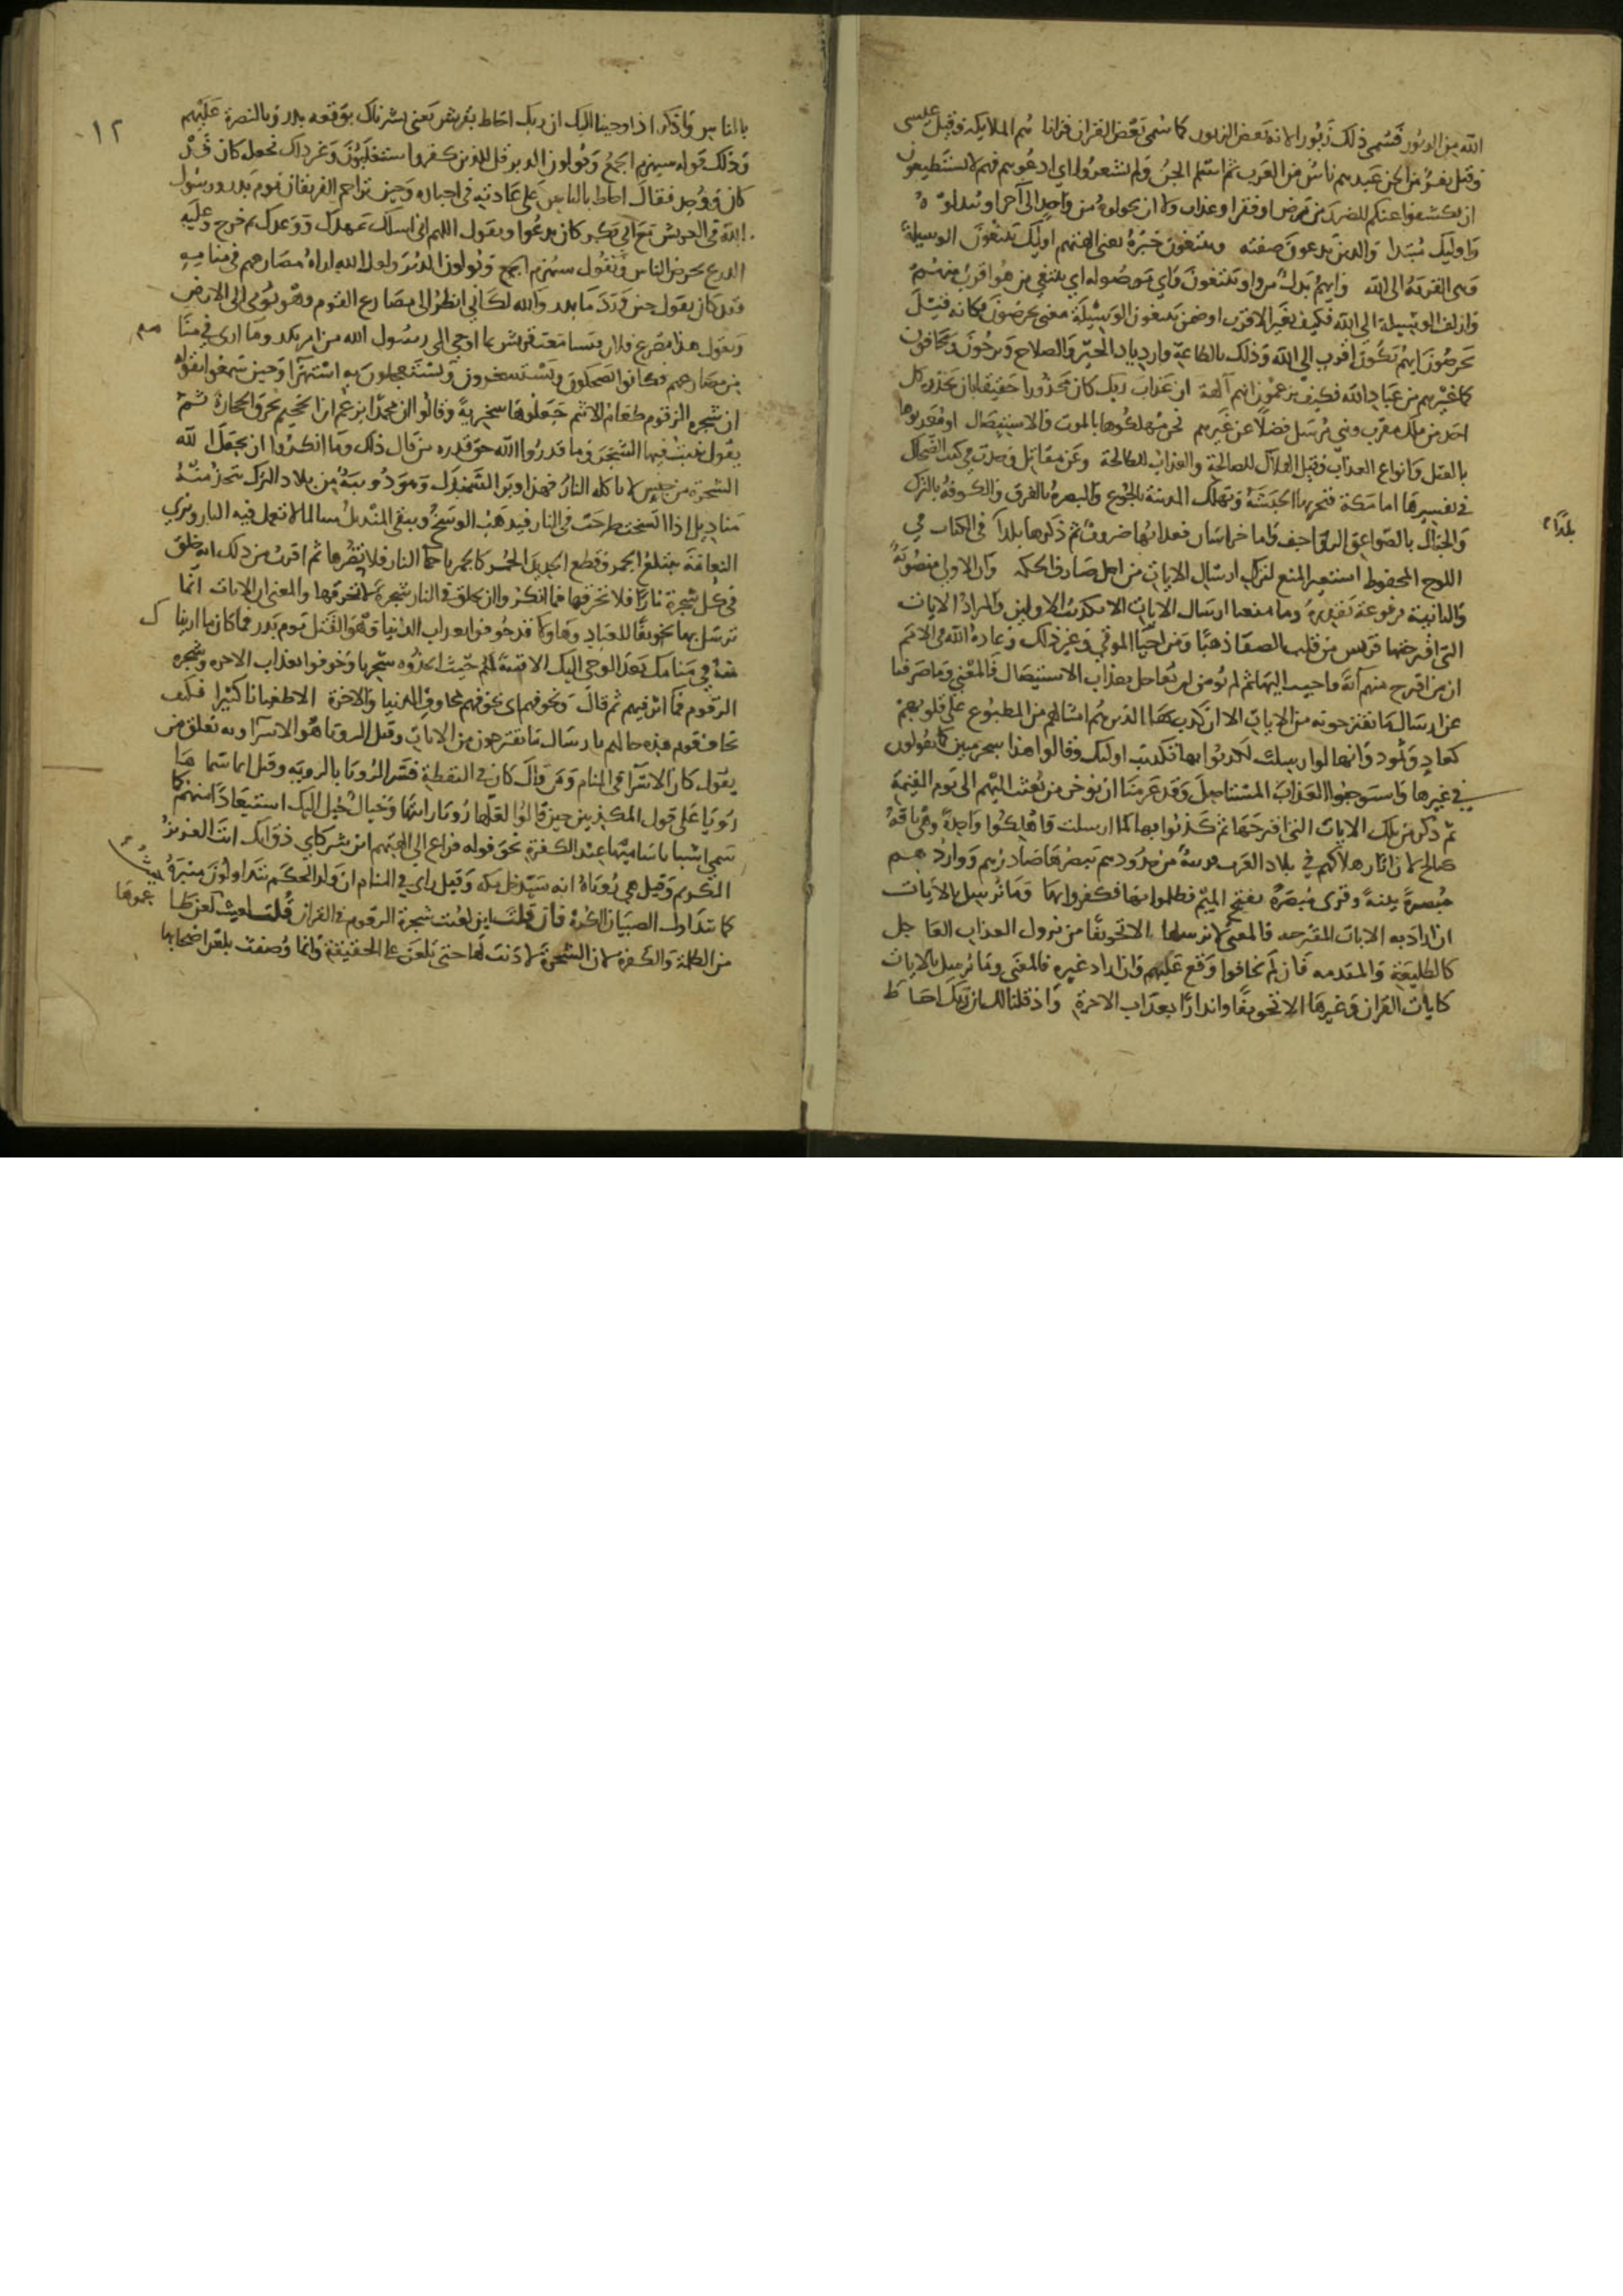 الله من الزبور فسمي ذلك زبورا لانه بعض الزبور كما سمي بعض القران قرانا هم الملايكه وقيل عيسى
وقيل نفر من الجن عبدهم ناس من العرب ثم اسلم الجن ولم يشعروا اي ادعوهم فهم لا يستطيعون
ان يكشفوا عنكم الضر من مرض او فقر او عذاب ولا ان يحولوه من واحد الى آخر او يبدلوه
واوليك مبتدا والذين يدعون صفته ويبتغون خبره يعني الهتهم اوليك يبتغون الوسيلة
وهي القربة الى الله وايهم بدل من واو يبتغون واي موصوله اي يبتغي من هو اقرب منهم
وازلف الوسيلة الى الله فكيف بغير الاقرب او ضمن يبتغون الوسيلة معنى يحرصون فكانه قيل
يحرصون ايهم يكون اقرب الى الله وذلك بالطاعة وازدياد الخير والصلاح ويرجون ويخافون
كما غيرهم من عباد الله فكيف يزعمون انهم آلهة ان عذاب ربك كان محذورا حقيقا بان يحذره كل
احد من ملك مقرب ونبي مرسل فضلا عن غيرهم نحن مهلكوها بالموت والاستيصال او معذبوها
بالقتل وانواع العذاب وقيل الهلاك للصالحة والعذاب للطالحة وعن مقاتل وجدت في كتب الضحاك
في تفسيرها اما مكة فتخربها الحبشة وتهلك المدينة بالجوع والبصرة بالغرق والكوفة بالترك
والجبال بالصواعق والرواجف واما خراسان فعذابها ضروب ثم ذكرها بلدا في الكتاب في
بلدا
اللوح المحفوظ استعير المنع لترك ارسال الايات من اجل صارف الحكمه وان الاولى منصوبة
والثانية مرفوعة تقديره وما منعنا ارسال الايات الا تكذيب الاولين والمراد الايات
التي اقترحتها قريش من قلب الصفا ذهبا ومن احيا الموتى وغير ذلك وعادة الله في الامم
ان من اقترح منهم آية فاجيب اليها ثم لم يومن ان يعاجل بعذاب الاستيصال فالمعنى وما صرفنا
عن ارسال ما تقترحونه من الايات الا ان كذب بها الذين هم امثالهم من المطبوع على قلوبهم
كعاد وثمود وانها لو ارسلت لكذبوا بها تكذيب اوليك وقالوا هذا سحر مبين كما يقولون
في غيرها واستوجبوا العذاب المستاصل وقد عزمنا ان نوخر من بعثت اليهم الى يوم القيمة
ثم ذكر من تلك الايات التي اقترحها ثم كذبوا بها لما ارسلت فاهلكوا واحدة وهي ناقة
صالح لان اثار هلاكهم في بلاد العرب قريبة من حدودهم يبصرها صادرهم وواردهم
مبصرة بينة وقرى مبصرة بفتح الميم فظلموا بها فكفروا بها وما نرسل بالايات
ان اراد به الايات المقترحه فالمعنى لا نرسلها الا تخويفا من نزول العذاب العاجل
كالطليعة والمقدمه فان لم يخافوا وقع عليهم وان اراد غيره فالمعنى وما نرسل بالايات
كايات القران وغيرها الا تخويفا وانذارا بعذاب الاخرة واذ قلنا لك ان ربك احاط
١٢
بالناس واذكر اذ اوحينا اليك ان ربك احاط بقريش يعني بشرناك بوقعه بدر وبالنصرة عليهم
وذلك قوله سيهزم الجمع ويولون الدبر قل للذين كفروا ستغلبون وغير ذلك نجعل كان قد
كان ووجد فقال احاط بالناس على عادته في اخباره وحين تزاحم الفريقان يوم بدر ورسول
الله في العريش مع ابي بكر كان يدعوا ويقول اللهم اني اسالك عهدك ووعدك ثم خرج وعليه
الدرع يحرض الناس ويقول سيهزم الجمع ويولون الدبر ولعل الله اراه مصارعهم في منامه
فقد كان يقول حين ورد ما بدر والله لكاني انظر الى مصارع القوم وهو يومي الى الارض
ويقول هذا مصرع فلان فتسامعت قريش بما اوحي الى رسول الله من امر بدر وما ارى في منامه
من مصارعهم فكانوا يضحكون ويستسخرون ويستعجلون به استهزا وحين سمعوا بقوله
ان شجرة الزقوم طعام الاثيم جعلوها سخرية وقالوا ان محمدا يزعم ان الجحيم تحرق الحجارة ثم
يقول ينبت فيها الشجر وما قدروا الله حق قدره من قال ذلك وما انكروا ان يجعل الله
الشجرة من جنس لا تاكله النار فهذا وبر السمندل وهو دويبة من بلاد الترك يتخذ منه
مناديل اذا اتسخت طرحت في النار فيذهب الوسخ ويبقى المنديل سالما لا تعمل فيه النار وترى
النعامة تبتلع الجمر وقطع الحديد الحمر كالجمر باحما النار فلا يضرها ثم اقرب من ذلك انه خلق
في كل شجرة نارا فلا تحرقها فما انكروا ان يخلق في النار شجرة لا تحرقها والمعنى ان الايات انما
نرسل بها تخويفا للعباد وهاولا قد خوفوا بعذاب الدنيا وهو القتل يوم بدر فما كان ما اريناك
منه في منامك بعد الوحي اليك الا فتنة لهم حيث اتخذوه سخريا وخوفوا بعذاب الاخره وشجره
الزقوم فما اثر فيهم ثم قال ونخوفهم اي نخوفهم بمخاوف الدنيا والاخرة الا طغيانا كبيرا فكيف
يخاف قوم هذه حالهم بارسال ما يقترحون من الايات وقيل الرويا هو الاسرا وبه تعلق من
يقول كان الاسرآ في المنام ومن قال كان في اليقظة فسر الرويا بالرويه وقيل انما سماها
رويا على قول المكذبين حين قالوا لعلها رويا رايتها وخيال خيل اليك استبعادا منهم كما
سمي اشيا باساميها عند الكفرة نحو قوله فراغ الى الهتهم اين شركاي ذق انك انت العزيز
الكريم وقيل هي روياه انه سيدخل مكه وقيل راي في المنام ان ولد الحكم يتداولون منبره
كما يتداول الصبيان الكرة فان قلت اين لعنت شجرة الزقوم في القران قلت لعنت حيث لعن طاعموها
من الظلمة والكفرة لان الشجرة لا ذنب لها حتى تلعن على الحقيقة وانما وصفت بلعن اصحابها